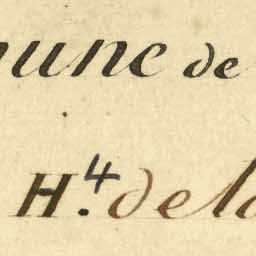 mune de
H.4 de la